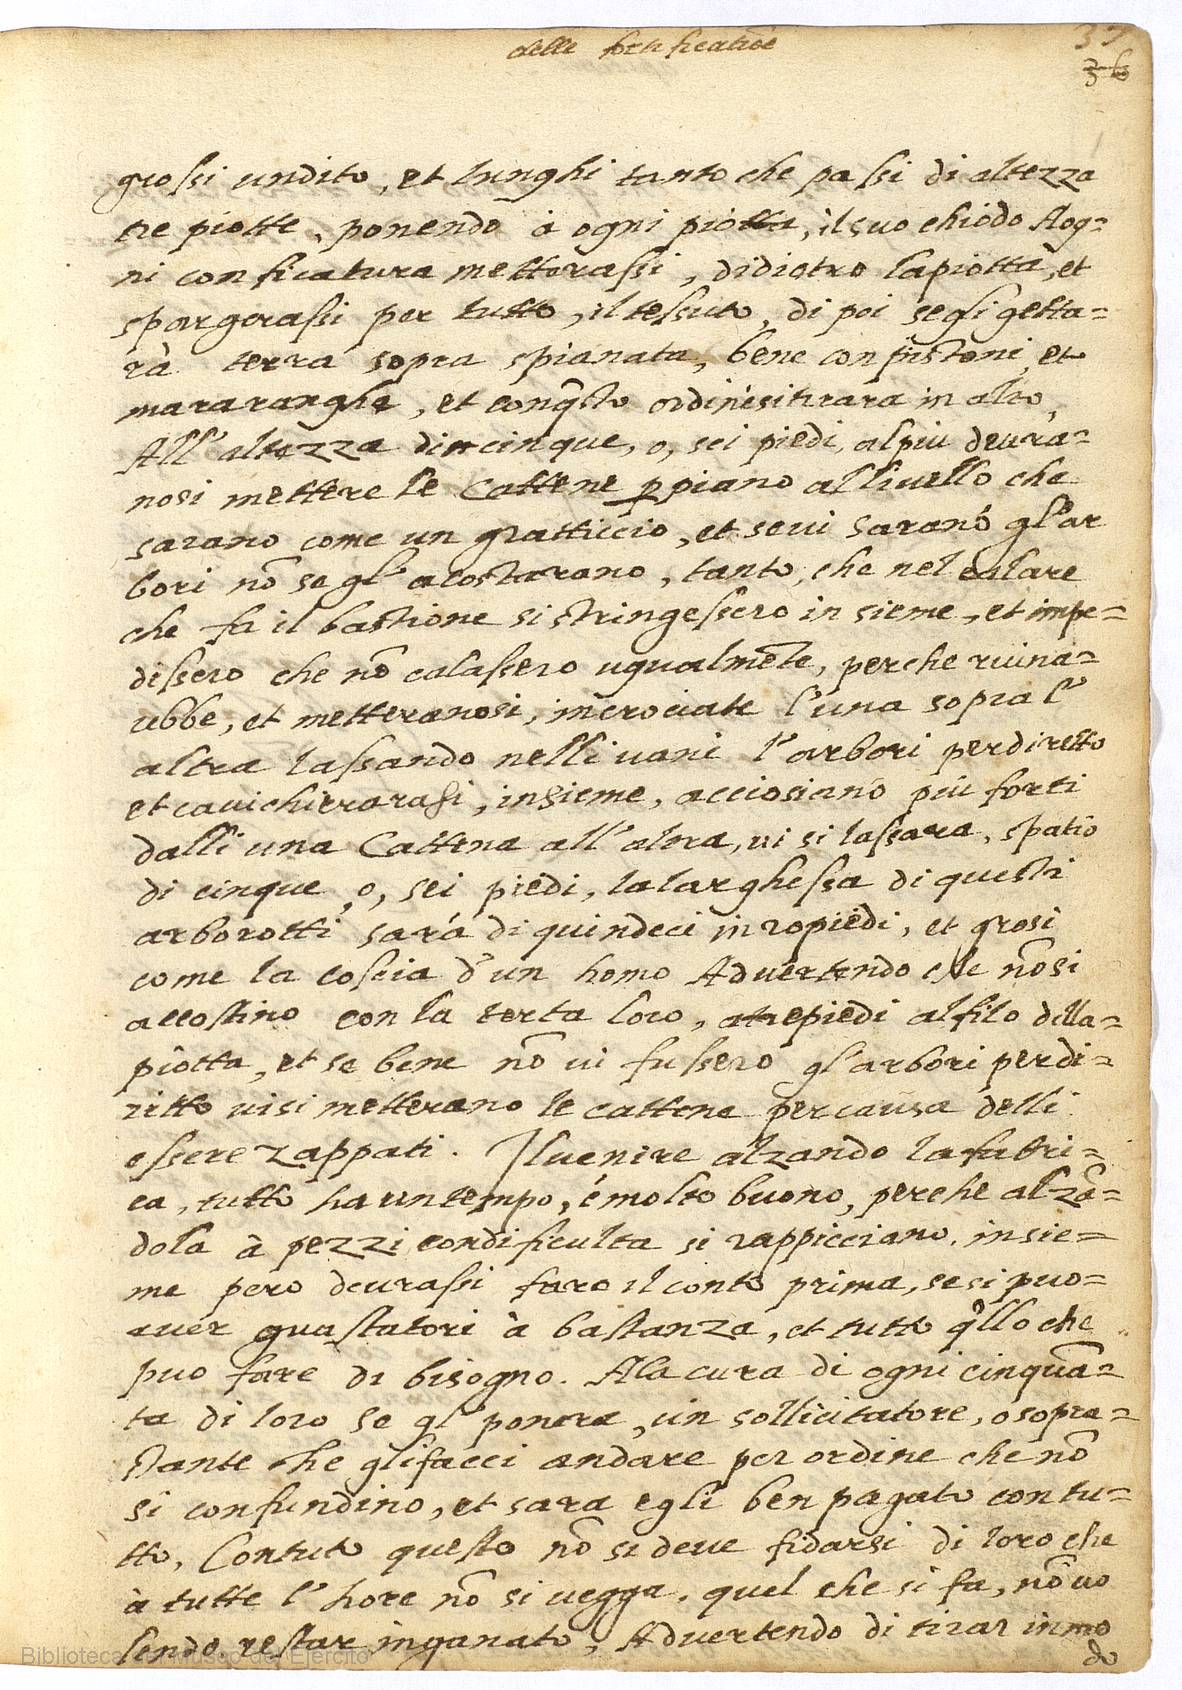 delle fortificatiõe
37
36
grossi undito, et lunghi tanto che passi di altezza
tre piotte, ponendo à ogni piotta, il suo chiodo Aog=
ni conficatura metterassi, didietro lapiotta, et
spargerassi per tutto, il tessuto, di poi segli getta=
rà terra sopra spianata, bene con pistoni, et
mararanghe, et conq̃sto ordinésitirara in alto,
All' altezza di cinque, o, sei piedi, alpiu deura=
nosi mettere le Cattene p piano allivello che
sarano come un gratticcio, et se vi saranó gl'ar
bori nõ se gl' acostarano, tanto, che nel calare
che fa il bastione si stringessero in sieme, et impe=
dissero che nõ calassero ugualmẽte, perche ruina=
ubbe, et metteranosi, incrociate l'una sopra l'
altra lassando nelli uani l'arbori perdiretto
et cauichierarasi, insieme, acciosianó più forti
dalli una Cattena all'altra, vi si lassara, spatio
di cinque, o, sei piedi, lalarghessa di questi
arborotti sará di quindeci in 20piedi, et grosi
come la coscia d'un homo Advertendo che nõsi
accostino con la terta loro, atrepiedi alfilo della=
piotta, et se bene nõ vi fussero gl'arbori perdi=
ritto visi metterano le cattene percausa delli
essere zappati. Iluenire alzando lafabri=
ca, tutto ha untempo, é molto buono, perche alzã=
dola à pezzi condificulta si rappicciano, insie=
me pero deurassi fare il conto prima, se si puo=
auer guastatori à bastanza, et tutto q̃llo che
puo fare di bisogno. Ala cura di ogni cinquã=
ta di loro se gl' ponera, un sollicitatore, o sopra=
stante che glifacci andare per ordine che nõ
si confundino, et sara egli ben pagato con tu=
tto, Contuto questo nõ si deue fidarsi di loro che
à tutte l'hore nõ si uegga, quel che si fa, nõ uo
lendo, restar inganato, Advertendo di tirar inmo
do
Biblioteca del Museo del Ejército